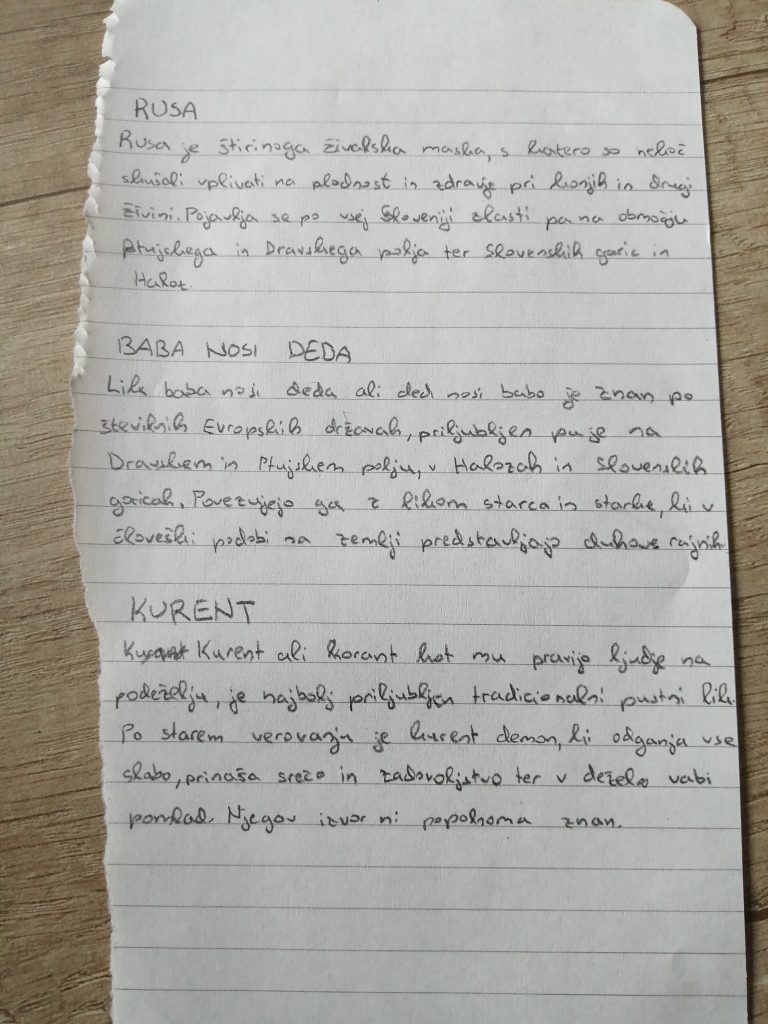 RUSA
Rusa je štirinoga živalska maska, s katero so nekoč
skušali vplivati na plodnost in zdravje pri konjih in drugi
živini. Pojavlja se po vsej Sloveniji zlasti pa na območju
Ptujskega in Dravskega polja ter Slovenskih goric in
Haloz.
BABA NOSI DEDA
Lik baba nosi deda ali ded nosi babo je znan po
številnih Evropskih državah, priljubljen pa je na
Dravskem in Ptujskem polju, v Halozah in Slovenskih
goricah. Povezujejo ga z likom starca in starke, ki v
človeški podobi na zemlji predstavljajo duhove rajnih
KURENT
Kurent ali korant kot mu pravijo ljudje na
podeželju, je najbolj priljubljen tradicionalni pustni lik.
Po starem verovanju je kurent demon, ki odganja vse
slabo, prinaša srečo in zadovoljstvo ter v deželo vabi
pomlad. Njegov izvor ni popolnoma znan.